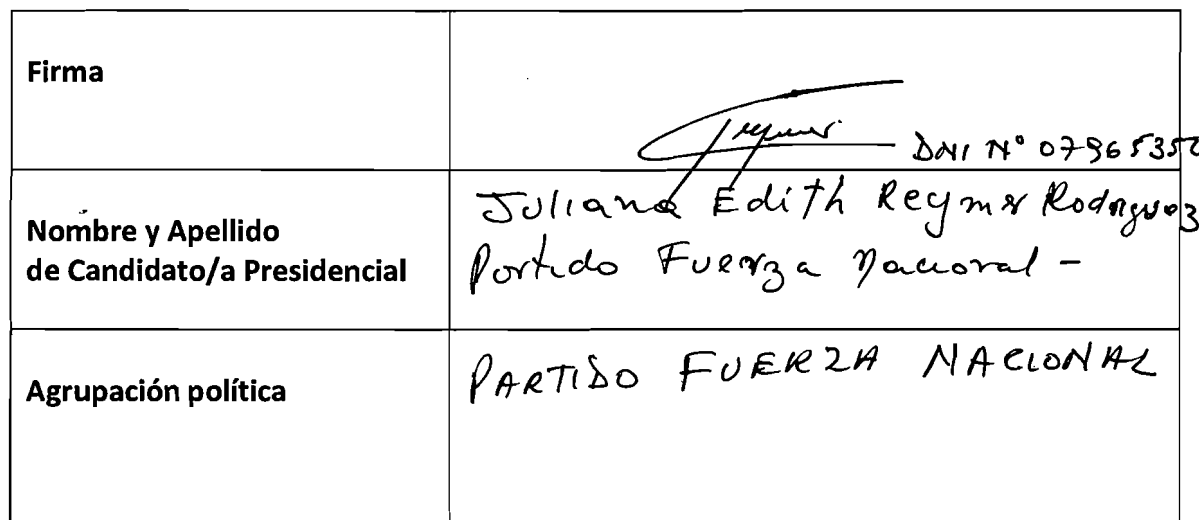 Firma
DNI N° 0796535
Nombre y Apellido
de Candidato/a Presidencial
Juliana Edith Reymer Rodriguez
Partido Fuerza Nacional -
Agrupación política
PARTIDO FUERZA NACIONAL